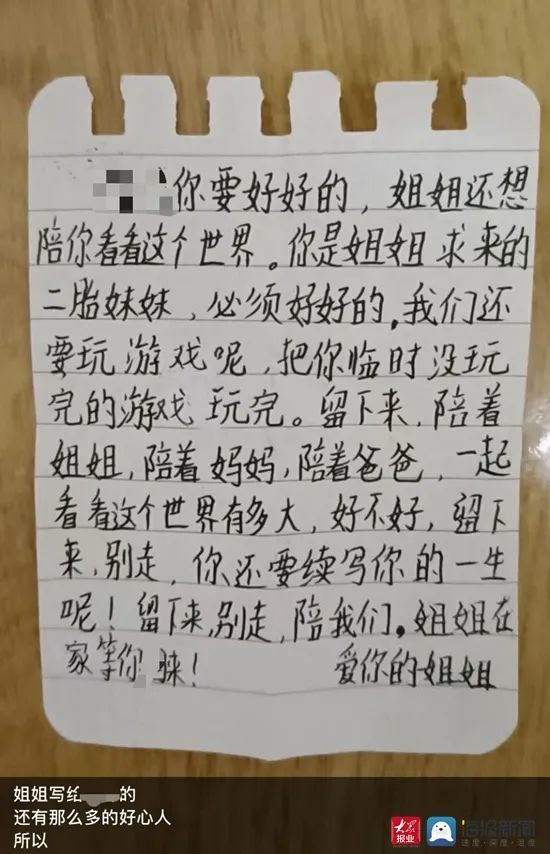 你要好好的，姐姐还想
陪你看看这个世界。你是姐姐求来的
二胎妹妹，必须好好的，我们还
要玩游戏呢，把你临时没玩
完的游戏玩完。留下来，陪着
姐姐，陪着妈妈，陪着爸爸，一起
看看这个世界有多大，好不好，留下
来，别走，你还要续写你的一生
呢！留下来，别走，陪我们。姐姐在
家等你 ！
爱你的姐姐
姐姐写给 的
还有那么多的好心人
所以
大众报业
海报新闻
速度·深度·温度